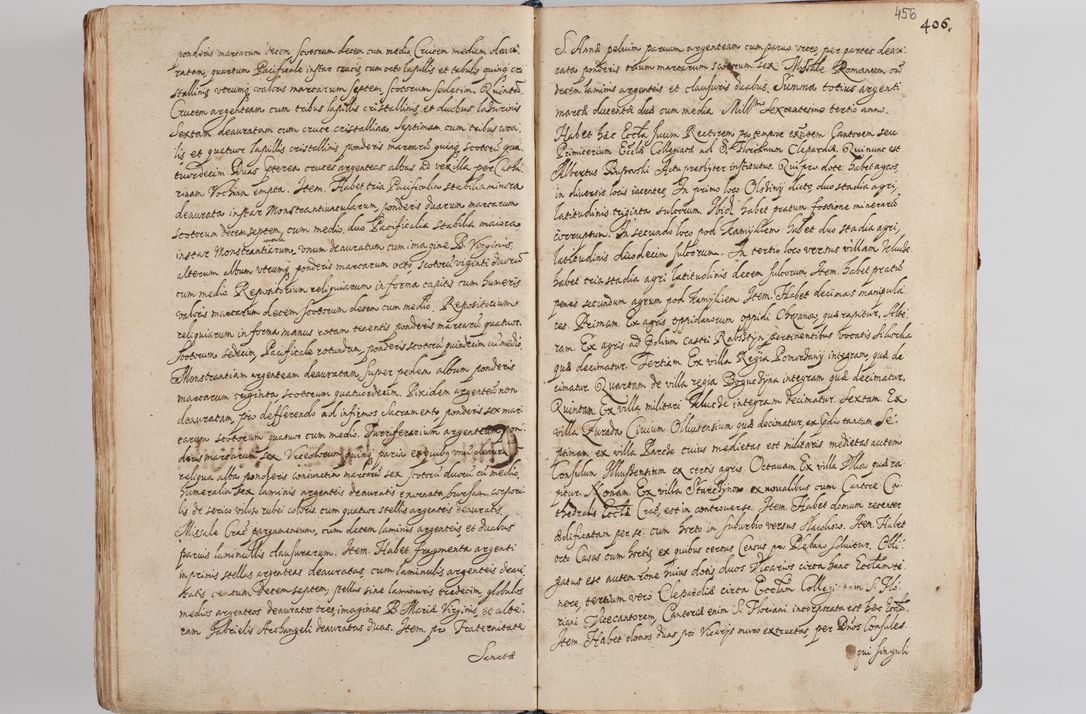 ponderis marcarum decem scotorum decem cum medio, Crucem mediam deau-
ratam, quartum Pacificale instar crucis, cum octo lapillis et tabulis quinq cri
stallinis, utrumq valoris marcarum septem, scotorum sedecim. Quintã
Crucem argenteam cum tribus lapillis cristallinis, et duobus lasurinis
Sextam deauratam cum cruce cristallina. Septimam cum tribus cora-
lis et quatuor lapillis cristallinis ponderis marcarũ quinq, scotorũ qua
tuordecim. Duas pterea cruces argenteas albas ad vexilla per Catha
rinam empta. Item. Habet tria Pacificalia stabilia minora
deaurata instar Monstrantiuncularum, ponderis duarum marcarum
scotorum decem septem, cum medio, duo Pacificalia stabilia maiora
instar Monstrantiarum, unum deauratum cum imagine B. Virginis,
alterum album utrumq ponderis marcarum octo scotorũ viginti duorũ
cum medio. Repositorium reliquiarum in forma capitis cum humeris
valoris marcarum decem scotorum decem cum medio. Repositorium
reliquiarum in forma manus rotam tenentis ponderis marcarũ quatuor.
scotorum sedecim, Pacificale rotundum, ponderis scotorũ quindecim cũ medio.
Monstrantiam argenteam deauratam, super pedem album ponderis
marcarum triginta scotorum quatuordecim. Pixidem argenteã non
deauratam, pro defferendo ad infirmos Sacramento ponderis sex mar
carum scotorum quatuor cum medio. Turriferarium argenteum pon-
deris marcarum sex Urceolorum quinq paria ex quibq unũ deaura
reliqua alba ponderis coniunctim marcarũ sex scotorũ duorũ cũ medio,
humeralia sex laminis argenteis deauratis exornata, bursam corpora-
lis de serico viloso rubei coloris. cum quatuor stellis argenteis deauratis.
Missale Crac pargameneum, cum decem laminis argenteis, et duabus
paruis laminullis clausurarum. Item. Habet fragmenta argenti
inprimis stellas argenteas deauratas, cum laminulis argenteis deau-
ratis centum decem septem, stellas sine laminuris tredecim, globulos
medios argenteos deauratos tres, imagines B. Mariæ Virginis, et alte-
ram Gabrielis Archangeli deauratas duas. Item. pro Fraternitate
Sanctæ
456
406.
S. Annæ peluim paruam argenteam cum paruo urceo, per partes deau-
rata ponderis trium marcarum scotorum sex. Missale Romanum cũ
decem laminis argenteis et clausuris duabus. Summa totius argenti
marcæ ducentæ duæ cum media Mill sexcentesimo tertio anno.
Habet hæc Eccla suum Rectorem pro tempore extem Cantorem seu
Primicerium Ecclæ Collegiatæ ad S. Florianum Clepardiæ. Qui nunc est
Albertus Actu presbyter institutus. Qui pro dote habet agros,
in diuersis locis iacentes, In primo loco dicto, duo stadia agri,
latitudinis triginta sulcorum. Ibid habet pratum fossione minerarũ
corruptum. In secundo loco pod Kamykiem habet duo stadia agri,
latitudinis duodecim sulcorum. In tertio loco versus villam
habet tria stadia agri latitudinis decem sulcorum, Item. habet pratũ
penes secundum agrum pod Kamykiem. Item. Habet decimas manipula
res. Primam. Ex agris oppidanorum oppidi quæ rapitur. Alte
ram. Ex agris ad Folium Castri Rabstyn pertinentibus vocatis
quæ decimatur. Tertiam Ex villa Regia Pomorzany integram, quæ de
cimatur. Quartam de villa regia Boguczyna integram quæ decimatur.
Quintam. Ex villa militari integram decimatur. Sextam. Ex
villa Zurada Ciuium Ilkussensium quæ decimatur, ex tantum Se-
ptimam. ex villa Pareda cuius medietas est militaris medietas autem
Consulum Ilkussensium ex certis agris. Octauam Ex villa quæ ra-
pitur. Nonam. Ex villa ex noualibus cum Cantore Ca-
thedralis Ecclæ Crac, est in controuersa. Item. Habet domum recenter
ædificatam per se. cum horto in suburbio versus. Item. Habet
octo Casas cum hortis, ex quibus certus Census pro Plebano soluitur. Obli-
gatus est autem rõne huius dotis duos Vicarios circa hanc Ecclam te-
nere, tertium verò Clepardiæ circa Ecclam Collegiatam S. Flo-
riani Vicecantorem, Cantoria enim S. Floriani incorporata est huic
Item. Habet domos duas pro Vicarijs muro extructas, per Dnos Consules.
qui singuli